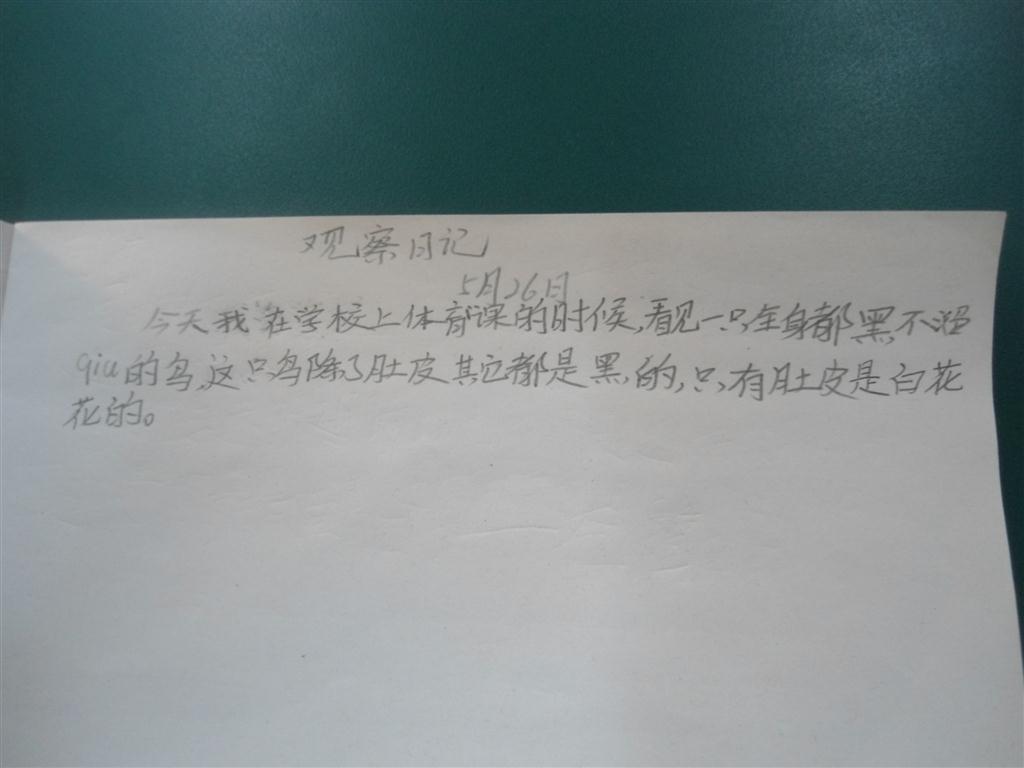 观察日记
5月26日
今天我在学校上体育课的时候,看见一只全身都黑不溜
qiu的鸟,这只鸟除了肚皮其它都是黑的,只有肚皮是白花
花的。